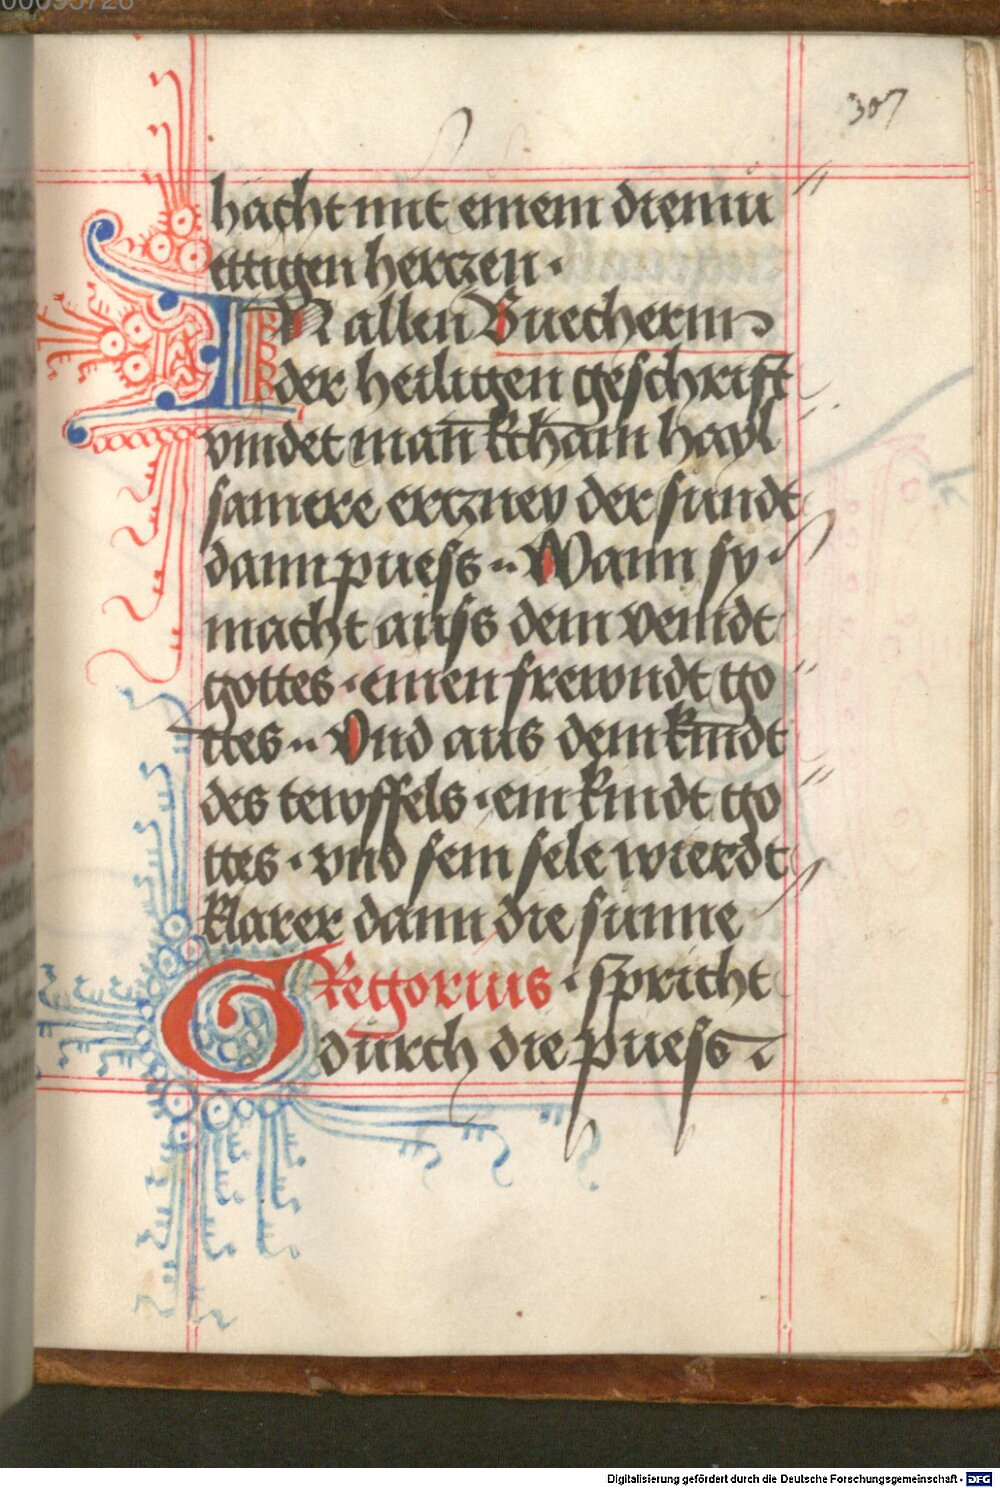 00095726
307
hacht mit einem diemu
ettigen herczen ·
IN allen Buechernn
der heiligen geschrifft
vindet man kcham hayl
samere erczney der sundt
dann puess ·· Wann sy
macht auss dem veindt
gottes · einen frewndt go
ttes ·· Vnd aus dem kindt
des tewffels · ein kindt go
ttes · vnd sein sele wierdt
klarer dann die sunne
GRegorius · spricht
durch die puess
Digitalisierung gefördert durch die Deutsche Forschungsgemeinschaft - DFG